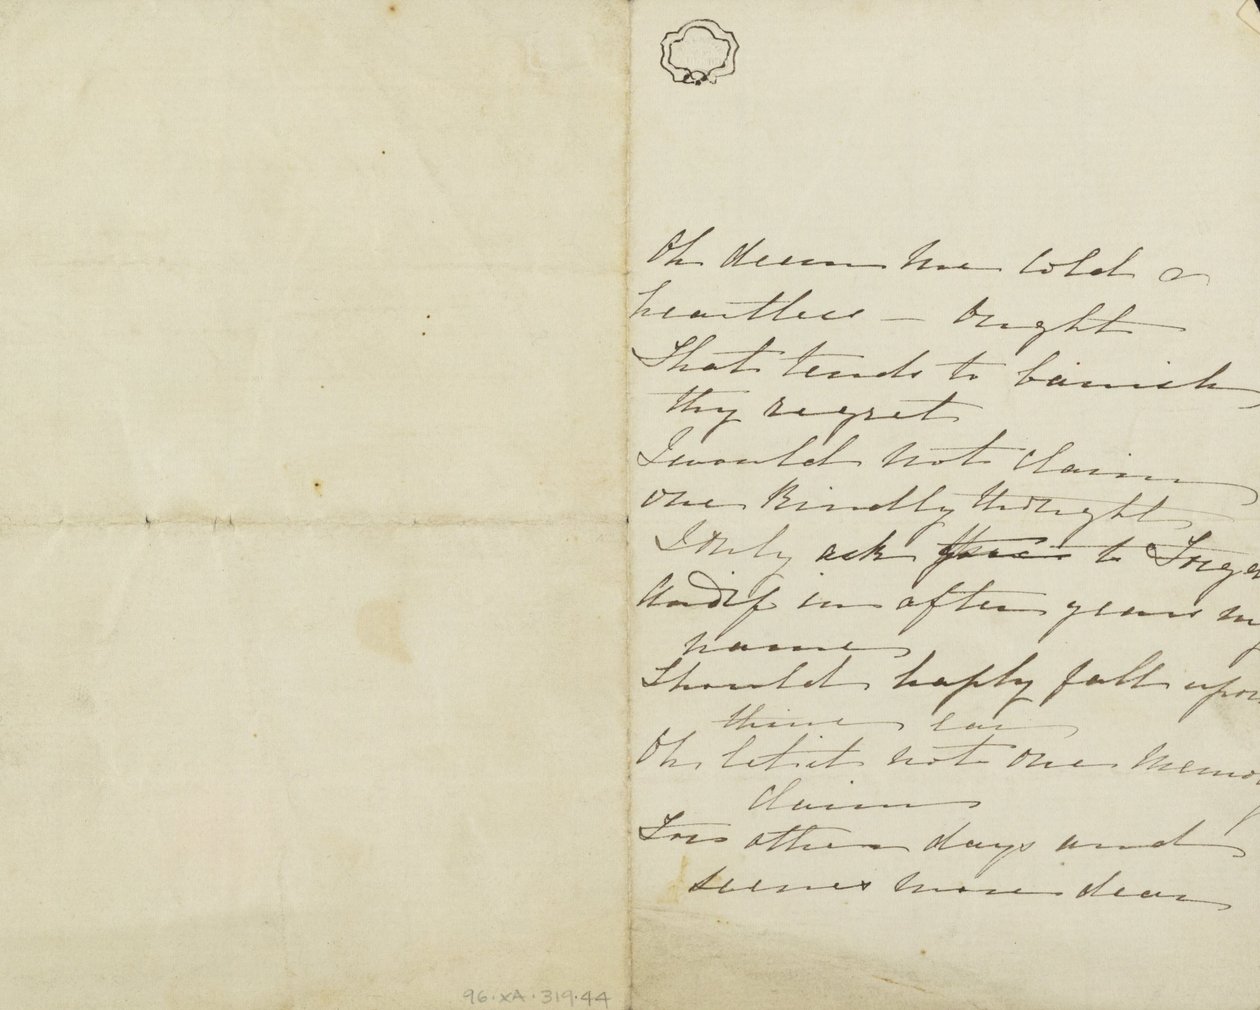 Oh deem me cold or
heartless — Ought
That tends to banish
thy regret
I would not claim
one Kindly thought
I only ask thee to Forge
And if in after years my
name
Should haply fall upon
thine ear
Oh let it not one memory
claim
For other days and
scenes more dear
96.XA.319.44